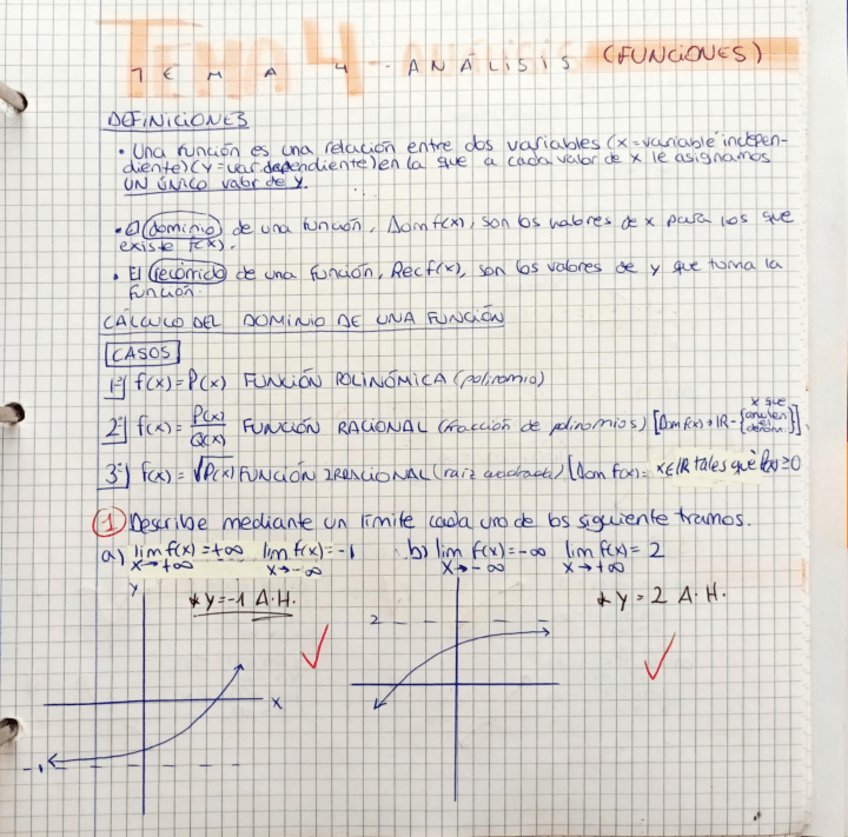 TEMA 4 - ANÁLISIS (FUNCIONES)
DEFINICIONES
• Una función es una relación entre dos variables (x=variable indepen-
diente) (y=var dependiente) en la que a cada valor de x le asignamos
UN ÚNICO valor de y.
• El dominio de una función, Dom f(x), son los valores de x para los que
existe f(x).
• El recorrido de una función, Rec f(x), son los valores de y que toma la
función.
CÁLCULO DEL DOMINIO DE UNA FUNCIÓN
CASOS
1º) f(x) = P(x) FUNCIÓN POLINÓMICA (polinomio)
2º) f(x) = P(x)/Q(x) FUNCIÓN RACIONAL (fracción de polinomios) [Dom f(x) = IR - {x que anulen el denom.}]
3º) f(x) = √P(x) FUNCIÓN IRRACIONAL (raíz cuadrada) [Dom f(x) = x∈IR tales que P(x) ≥ 0
1 Describe mediante un límite cada uno de los siguiente tramos.
a) lim f(x) = +∞ lim f(x) = -1 b) lim f(x) = -∞ lim f(x) = 2
x→+∞ x→-∞ x→-∞ x→+∞
y * y = -1 A.H. * y = 2 A.H.
2
x
-1